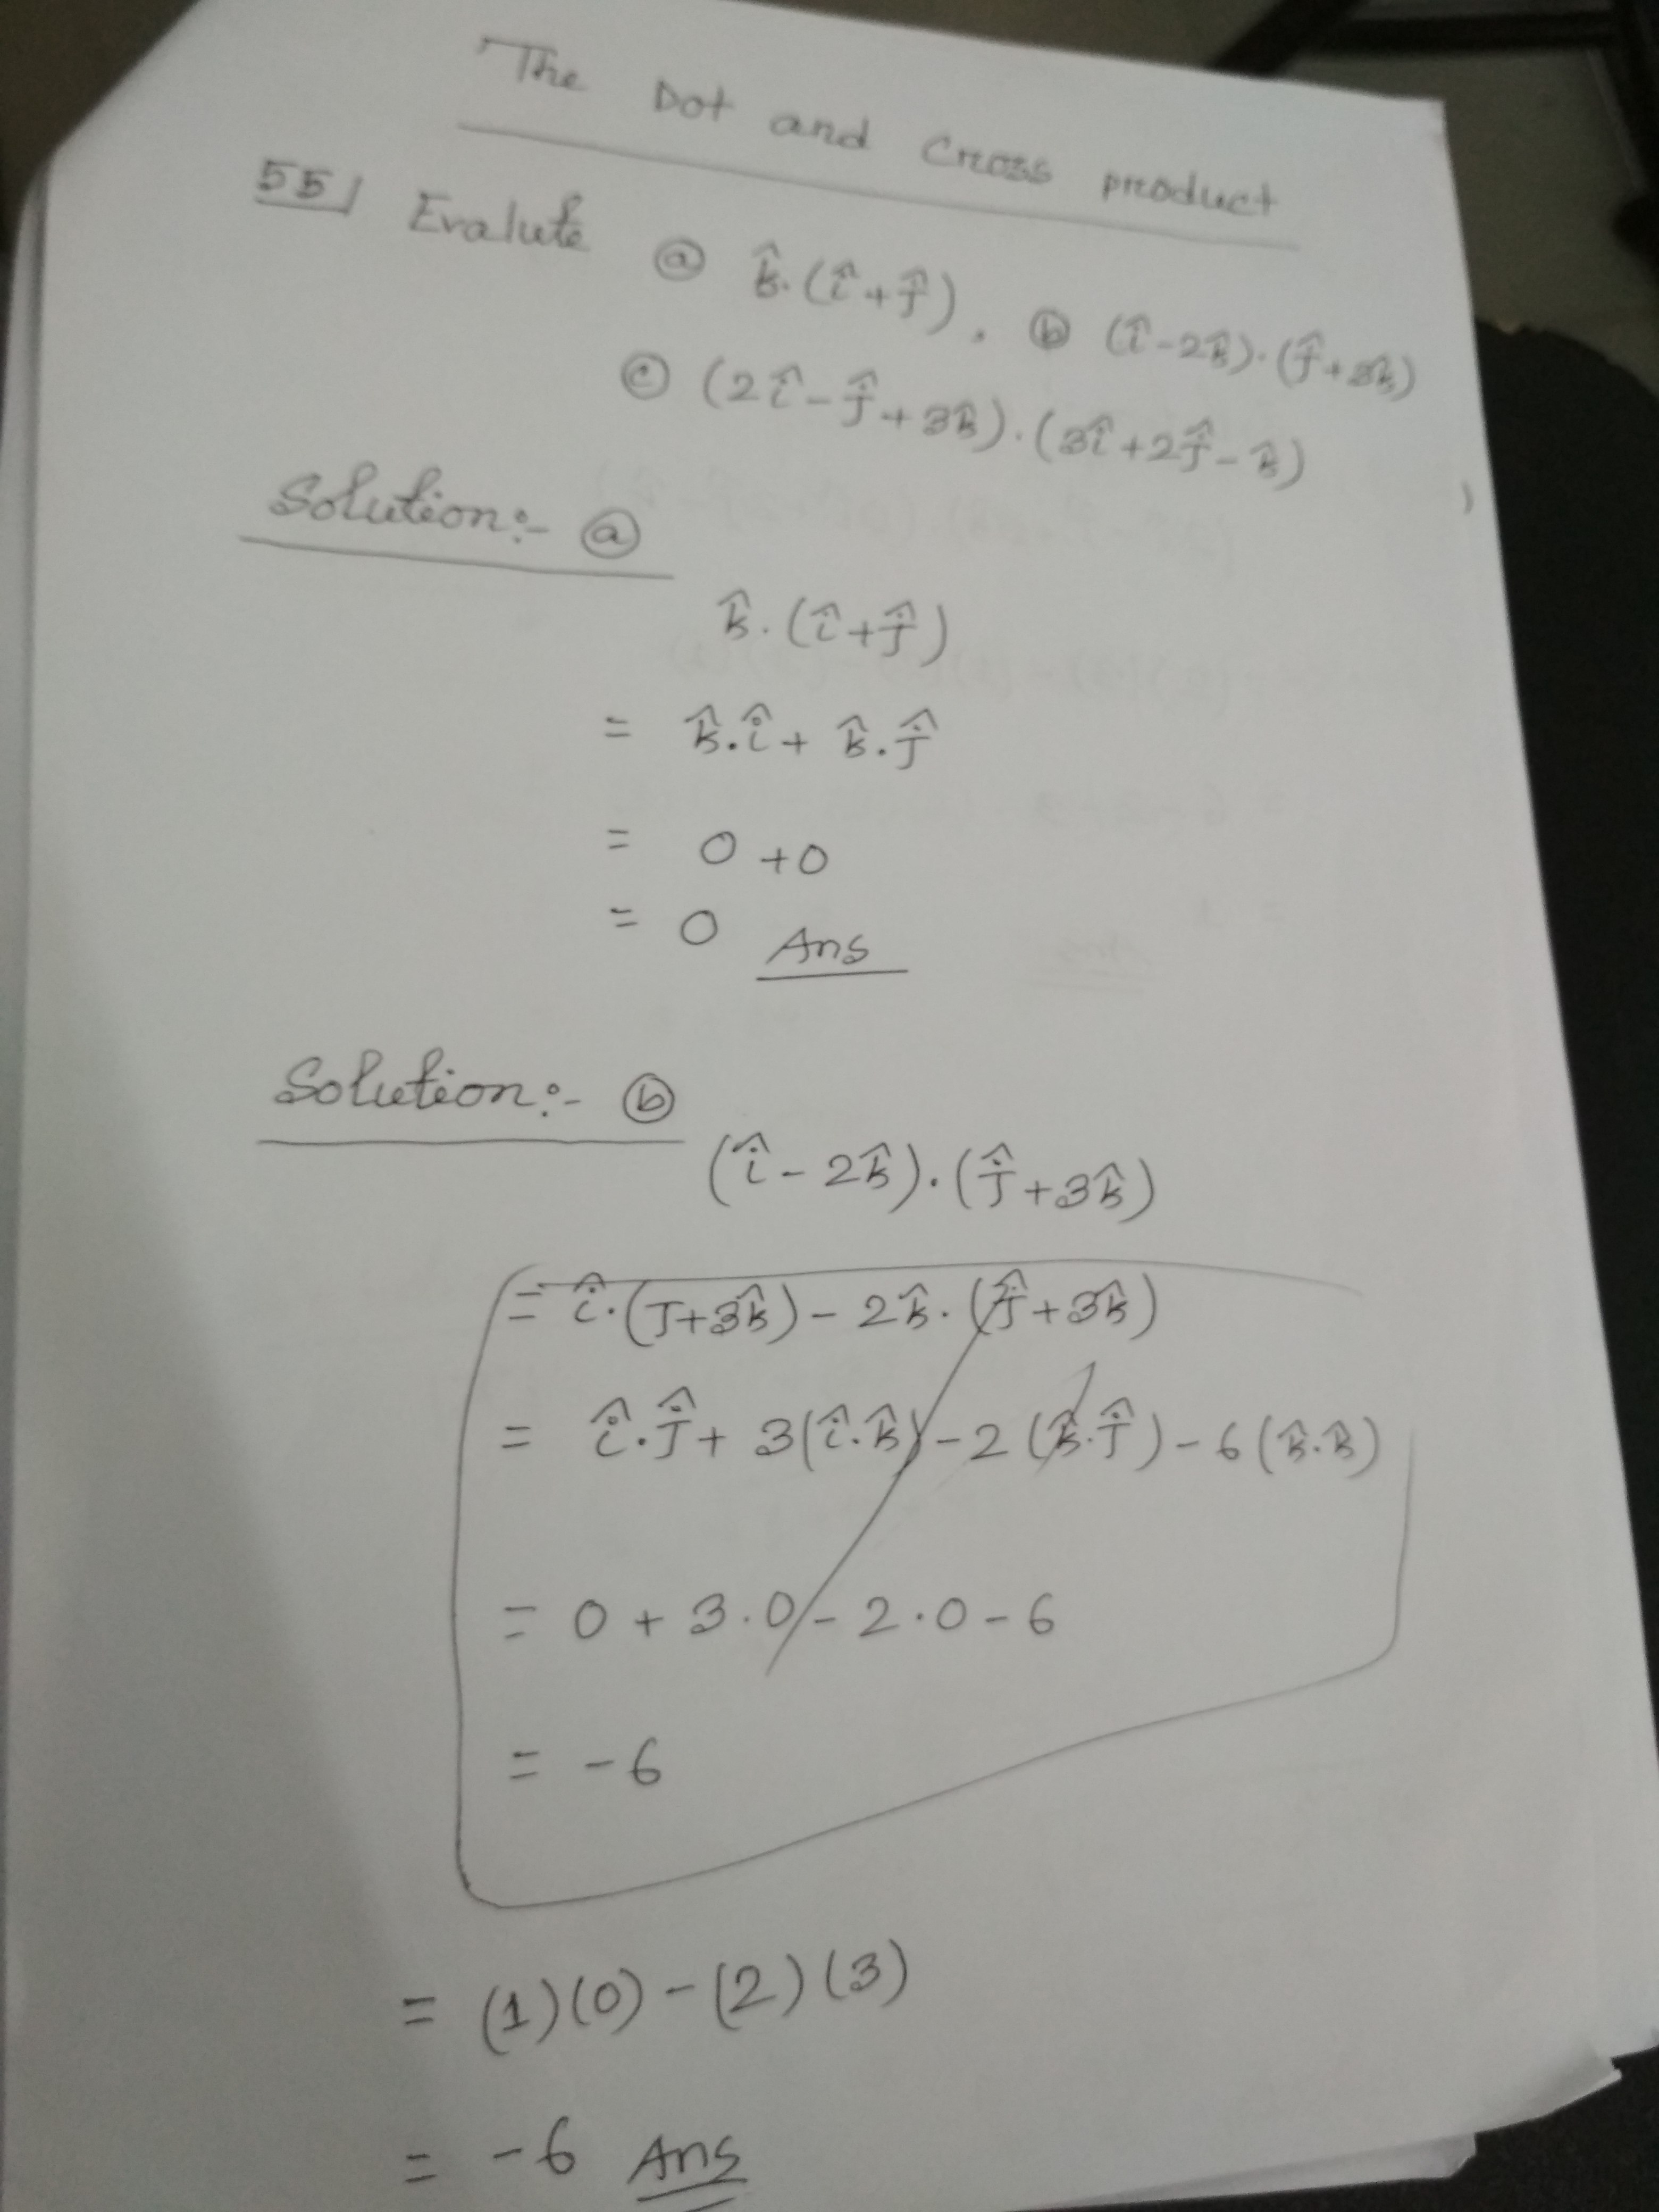 The Dot and Cross product
55 Evalute ⓐ k̂.(î+ĵ), ⓑ (î-2k̂).(ĵ+3k̂)
ⓒ (2î-ĵ+3k̂).(3î+2ĵ-k̂)
Solution:- ⓐ
k̂.(î+ĵ)
= k̂.î+ k̂.ĵ
= 0+0
= 0 Ans
Solution:- ⓑ
(î-2k̂).(ĵ+3k̂)
= î.(J+3k̂)-2k̂.(ĵ+3k̂)
= î.ĵ+3(î.k̂)-2(k̂.ĵ)-6(k̂.k̂)
= 0+3.0-2.0-6
= -6
= (1)(0)-(2)(3)
= -6 Ans